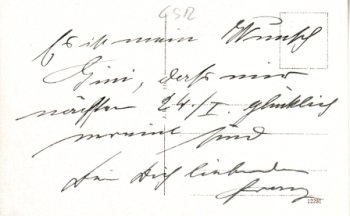 GSR
Es ist mein Wunsch
Gini, dass wir
nächsten 24./I. glücklich
vereint sind
Dein Dich liebender
Franz
12291